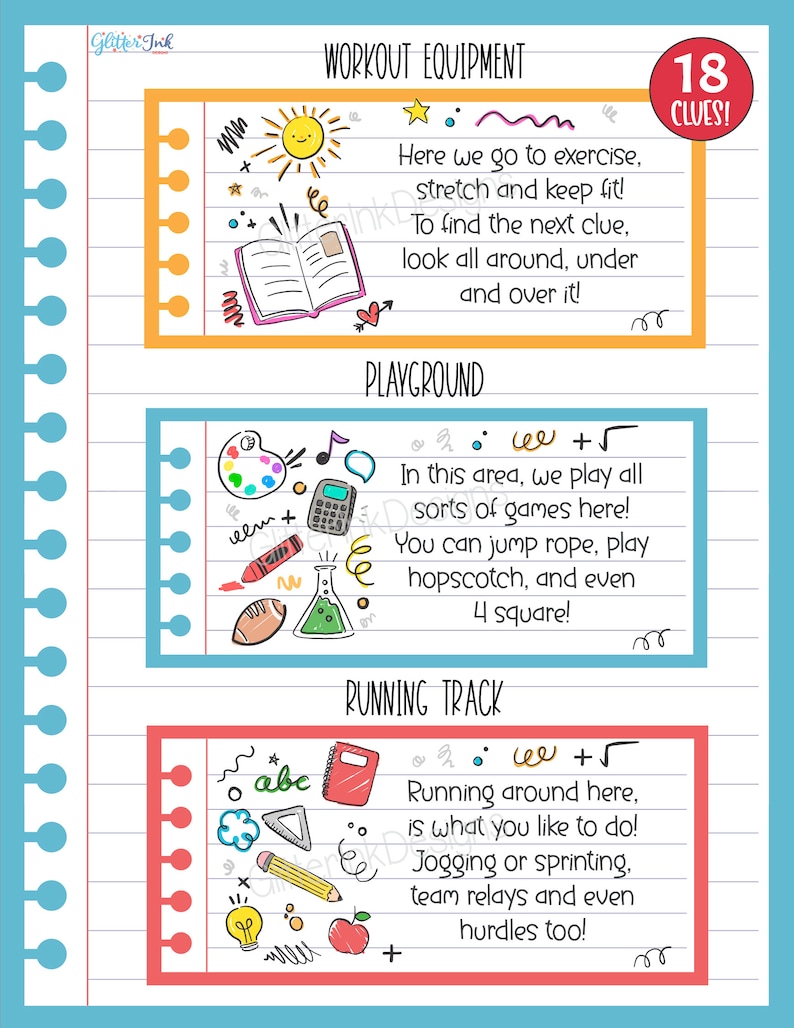 Glitter Ink
DESIGNS
WORKOUT EQUIPMENT
18
CLUES!
Here we go to exercise,
stretch and keep fit!
To find the next clue,
look all around, under
and over it!
GlitterInkDesigns
PLAYGROUND
In this area, we play all
sorts of games here!
You can jump rope, play
hopscotch, and even
4 square!
GlitterInkDesigns
RUNNING TRACK
abc
Running around here,
is what you like to do!
Jogging or sprinting,
team relays and even
hurdles too!
GlitterInkDesigns